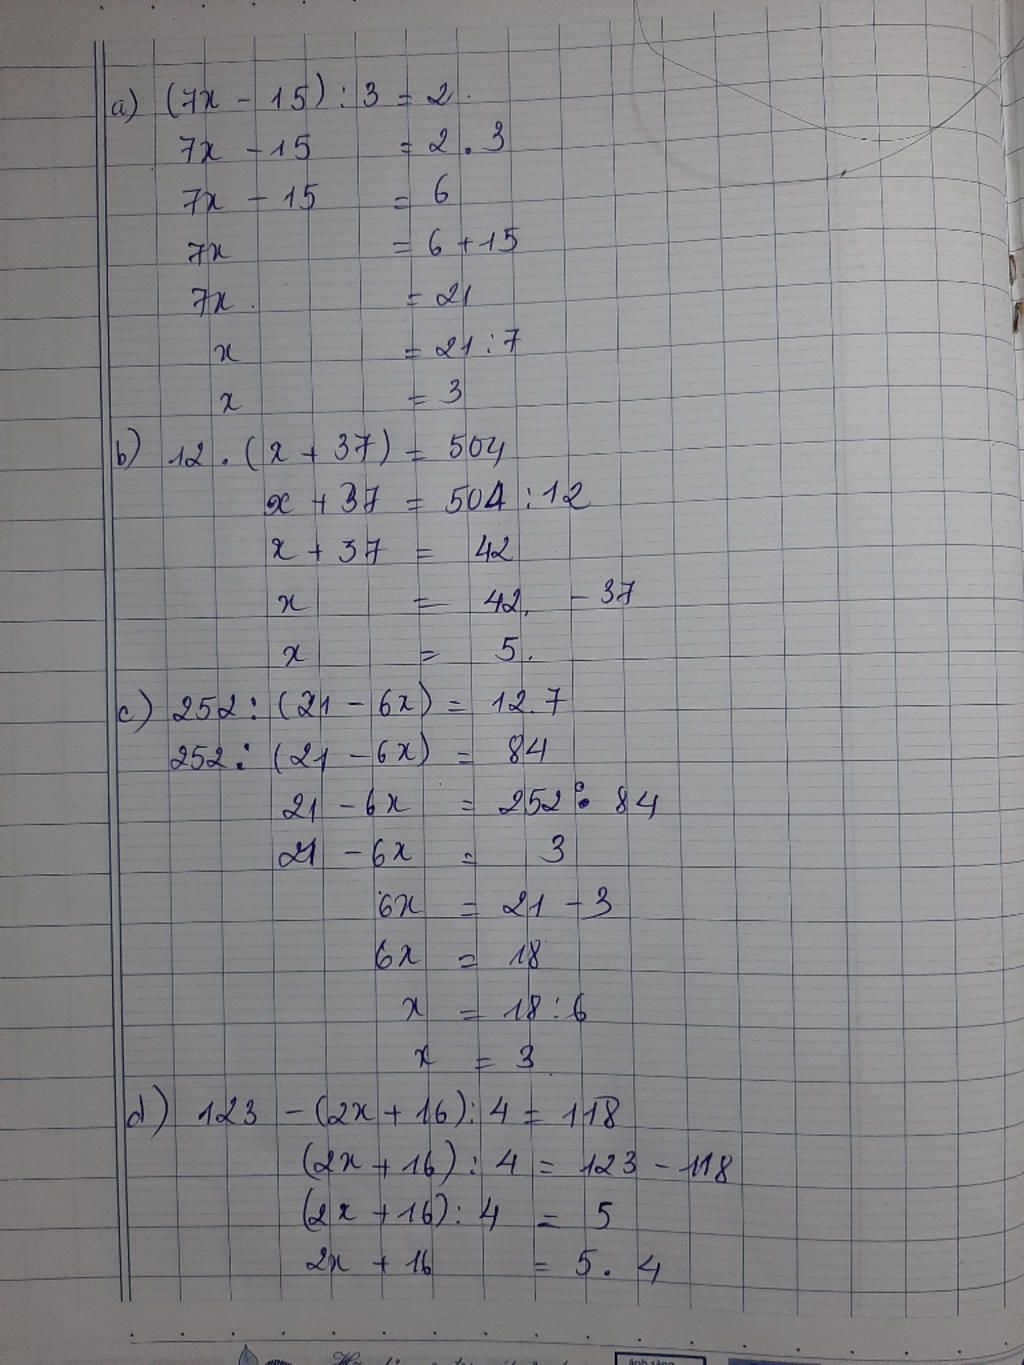 a) (7x - 15) : 3 = 2.
7x - 15 = 2 . 3
7x - 15 = 6
7x = 6 + 15
7x = 21
x = 21 : 7
x = 3
b) 12 . (x + 37) = 504
x + 37 = 504 : 12
x + 37 = 42
x = 42 - 37
x = 5.
c) 252 : (21 - 6x) = 12.7
252 : (21 - 6x) = 84
21 - 6x = 252 : 84
21 - 6x = 3
6x = 21 - 3
6x = 18
x = 18 : 6
x = 3
d) 123 - (2x + 16) : 4 = 118
(2x + 16) : 4 = 123 - 118
(2x + 16) : 4 = 5
2x + 16 = 5 . 4